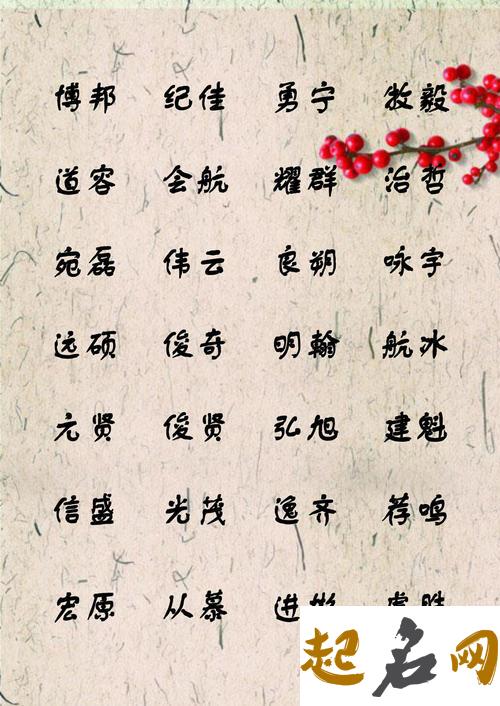 博邦 纪佳 勇宁 牧毅
道容 会航 耀群 治哲
宛磊 伟云 良朔 咏字
远硕 俊奇 明翰 航冰
元贤 俊贤 弘旭 建魁
信盛 光茂 逸齐 荐鸣
宏原 从慕 进
起名网